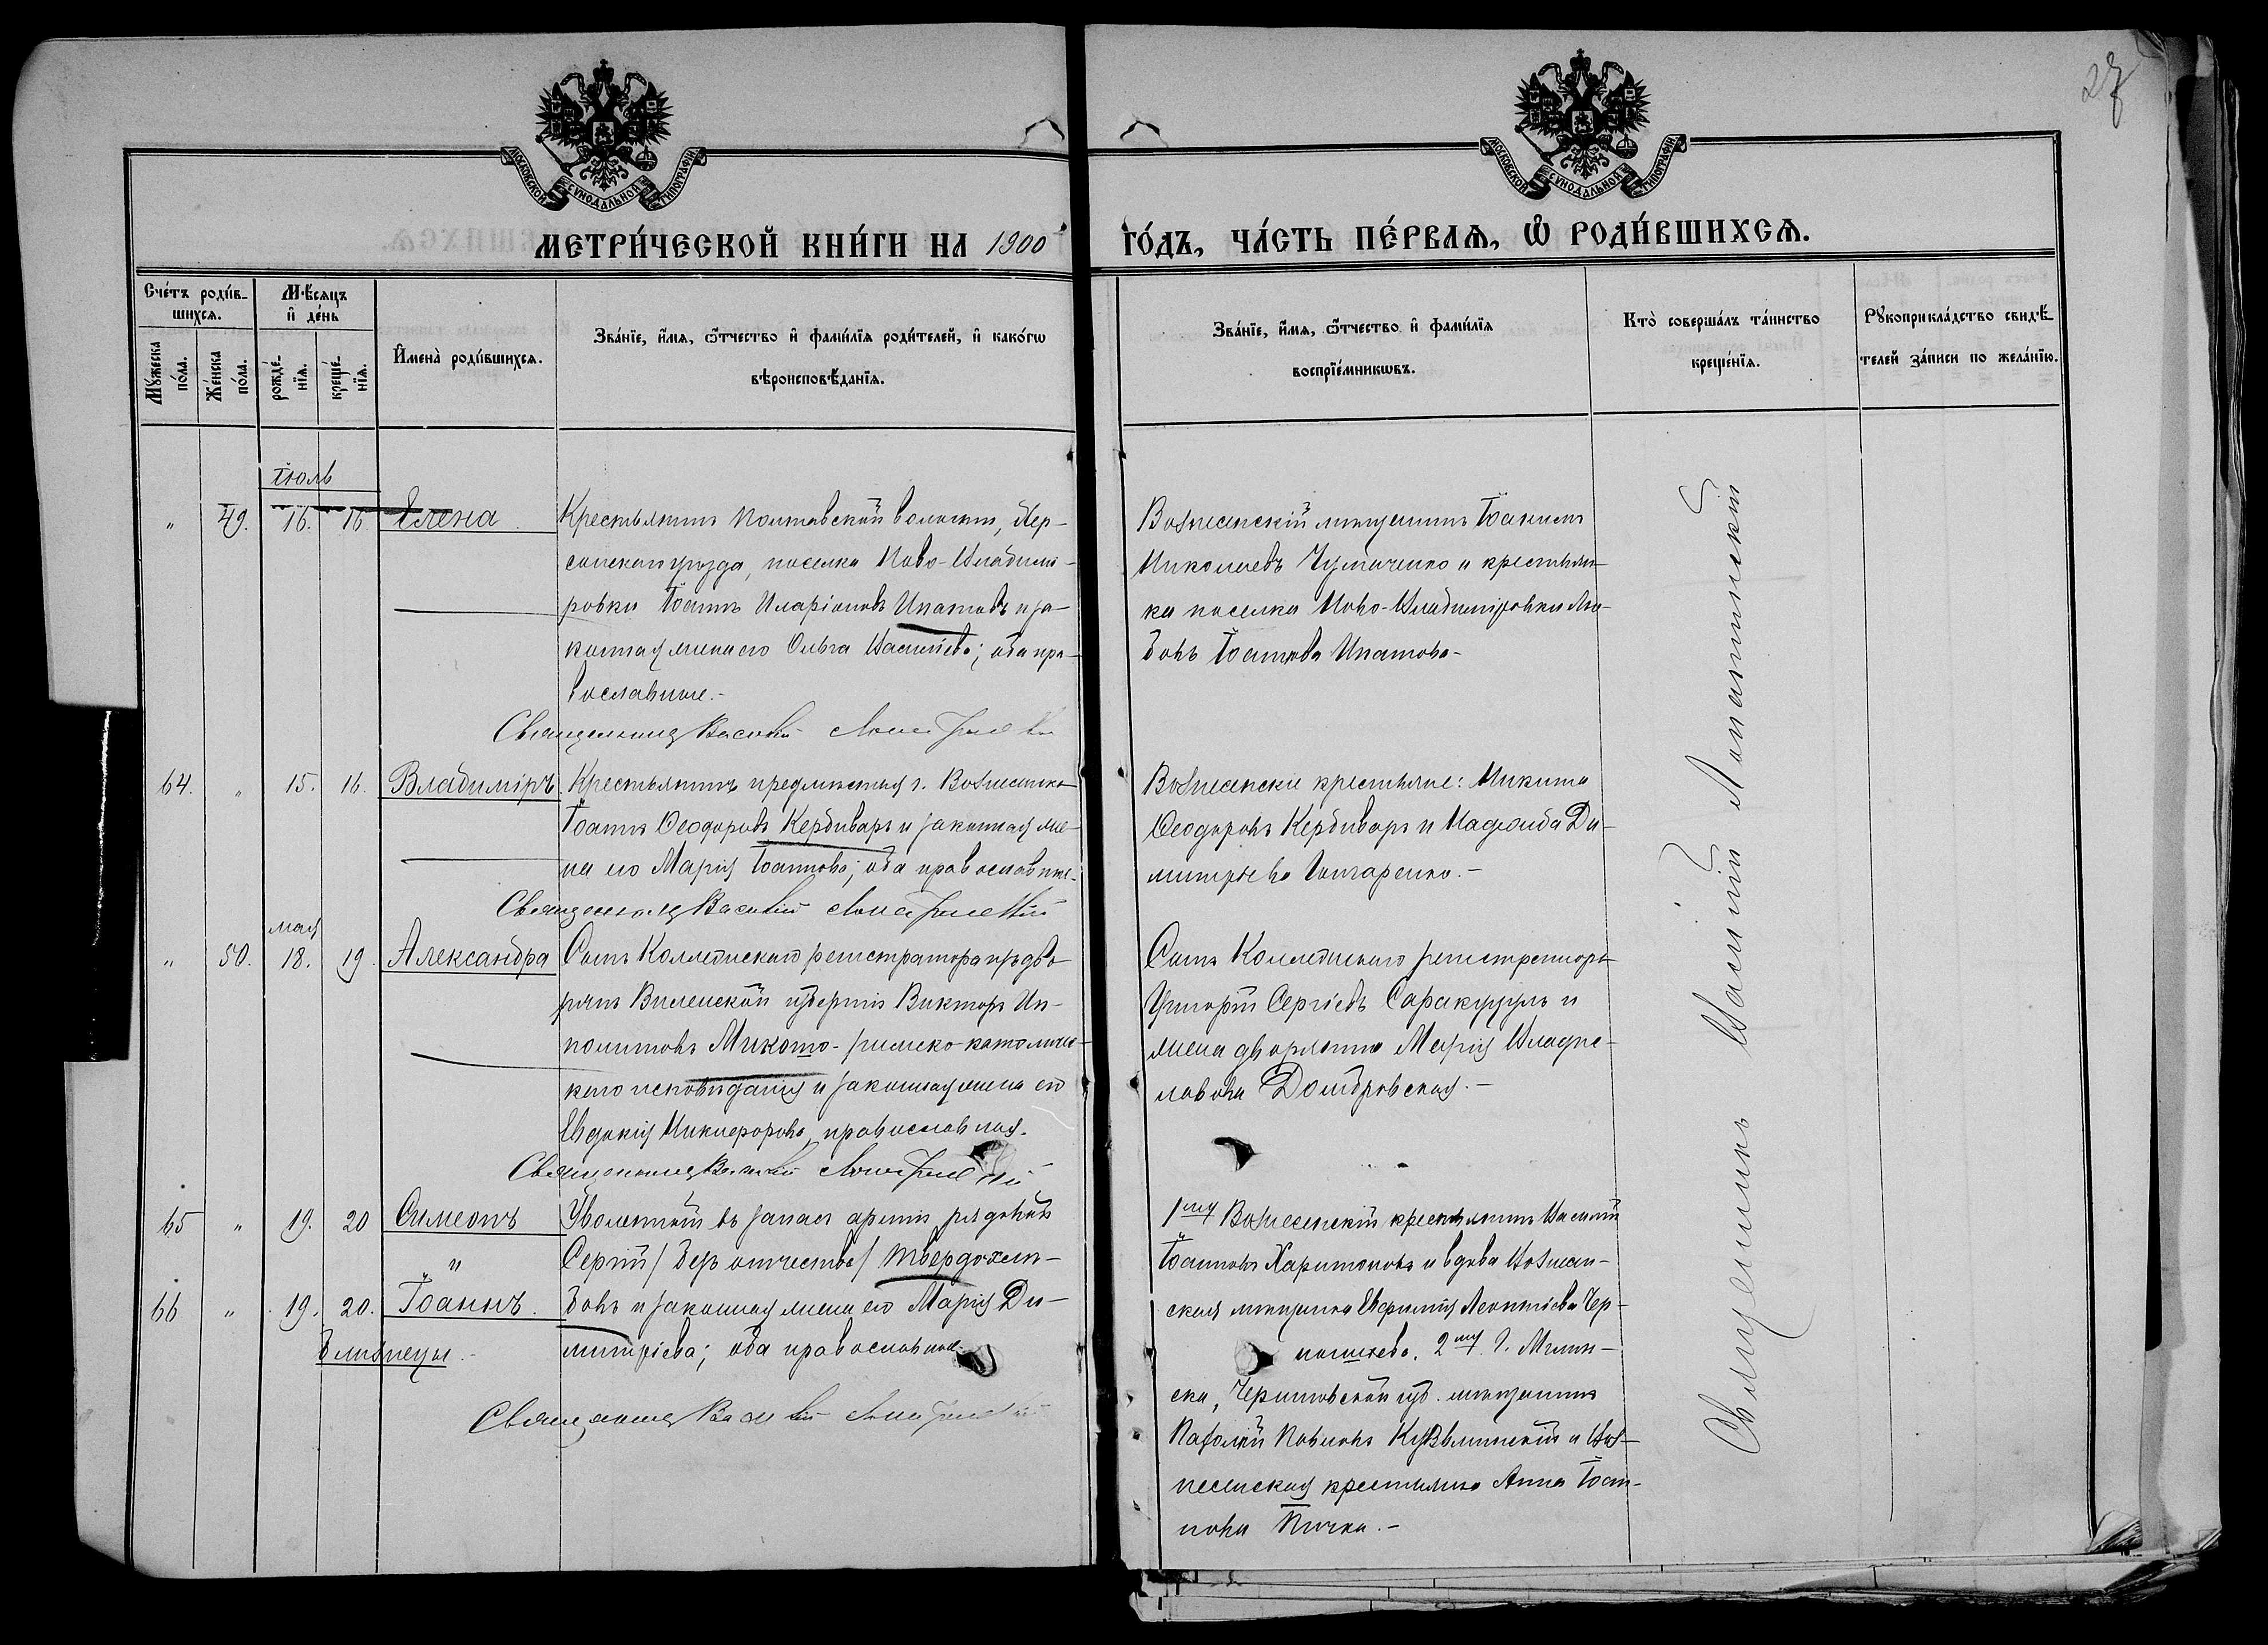 27
МОСКОВСКОЙ СѴНОДАЛЬНОЙ ТИПОГРАФІИ
МОСКОВСКОЙ СѴНОДАЛЬНОЙ ТИПОГРАФІИ
МЕТРИ́ЧЕСКОЙ КНИ́ГИ НА 1900 ГО́ДЪ, ЧА́СТЬ ПЕ́РВАѦ, Ѡ҆ РОДИ́ВШИХСѦ.
Сче́тъ роди́в-
шихсѧ.
Мꙋ́жеска
по́ла.
Же́нска
по́ла.
М҄ѣсѧцъ
и҆ де́нь
рожде́-
нїѧ.
креще́-
нїѧ.
И҆мена̀ роди́вшихсѧ.
Зва́нїе, и҆́мѧ, ѻ҆́тчество и҆ фамѝлїѧ роди́телей, и҆ како́гѡ
вѣроисповѣ́данїѧ.
Зва́нїе, и҆́мѧ, ѻ҆́тчество и҆ фамѝлїѧ
воспрїе́мникѡвъ.
Кто̀ соверша́лъ та́инство
креще́нїѧ.
Рꙋкоприкла́дство свидѣ́-
телей за́писи по жела́нїю.
Іюль
" 49. 16. 16. Елена
Крестьянинъ Полтавской волости, Хер-
сонскаго уѣзда, поселка Ново-Владими-
ровки Іоаннъ Иларіоновъ Ипатовъ и за-
конная жена его Ольга Васильева; оба пра-
вославные.-
Священникъ Василій
Вознесенскій мѣщанинъ Іоакимъ
Николаевъ Чумаченко и крестьян-
ка поселка Ново-Владиміровки Лю-
бовь Іоаннова Ипатова-
64. " 15. 16. Владиміръ
Крестьянинъ предмѣстья г. Вознесенска
Іоаннъ Ѳеодоровъ Кердиваръ и законная же-
на его Марія Іоаннова; оба православные.
Священникъ Василій
Вознесенскіе крестьяне: Никита
Ѳеодоровъ Кердиваръ и Надежда Ди-
митріева Гончаренко.-
мая
" 50. 18. 19. Александра
Сынъ Коллежскаго регистратора изъ дво-
рянъ Виленской губерніи Викторъ Ип-
политовъ Микошо- римско-католичес-
каго исповѣданія и законная жена его
Евдокія Никифорова, православная.
Священникъ Василій
Сынъ Коллежскаго регистратора
Григорій Сергіевъ и
жена дворянина Марія Владис-
лавова Домбровская.-
65 " 19. 20 Симеонъ
"
66 " 19. 20. Іоаннъ.
близнецы.-
Уволенный въ запасъ арміи рядовой
Сергій /безъ отчества/ Твердохлѣ-
бовъ и законная жена его Марія Ди-
митріева; оба православные.
Священникъ Василій
1му Вознесенскій крестьянинъ Василій
Іоанновъ Харитоновъ и вдова Вознесен-
ская мѣщанка Евфимія Леонтіева Чер-
2му г. Мглин-
ска, Черниговской губ. мѣщанинъ
Павловъ и Воз-
несенская крестьянка Анна Іоан-
нова
Священникъ Василій Лопатинскій